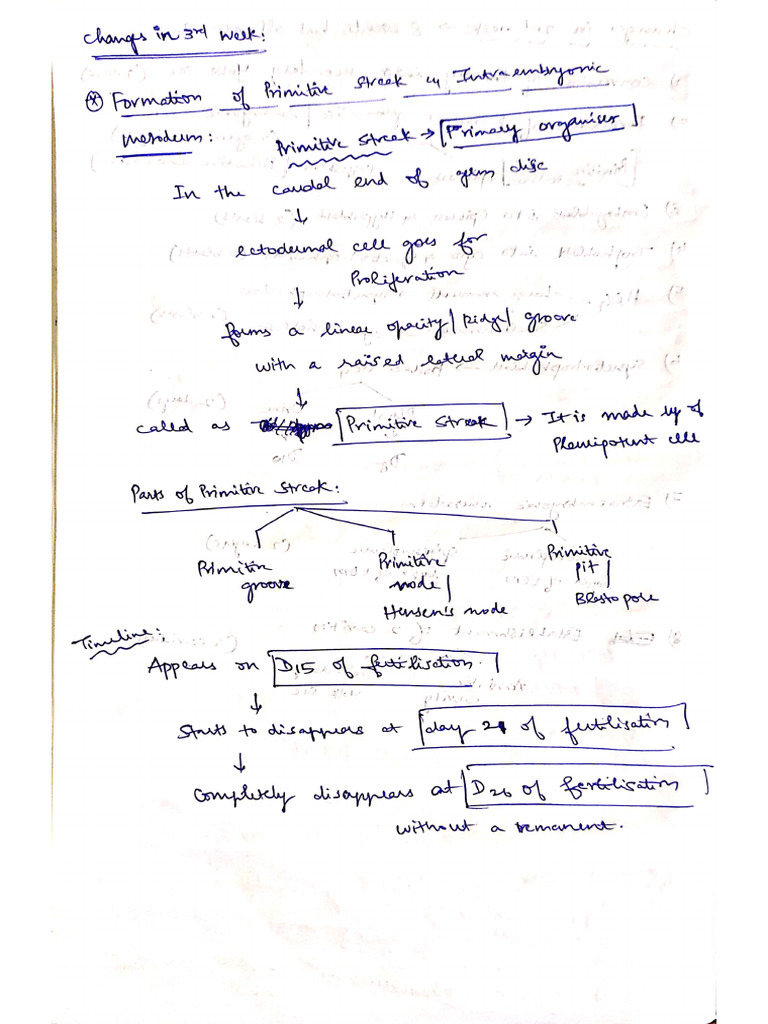 Changes in 3rd week:
Formation of Primitive Streak & Intraembryonic
Mesoderm: Primitive Streak → Primary organiser
In the caudal end of germ disc
↓
ectodermal cell goes for
Proliferation
↓
forms a linear opacity / Ridge / groove
with a raised lateral margin
↓
called as Primitive Streak → It is made up of
Pleuripotent cell
Parts of Primitive Streak:
Primitive groove
Primitive node
Hensen's node
Primitive pit
Blastopole
Timeline:
Appears on D15 of fertilisation.
↓
Starts to disappears at day 21 of fertilisation
↓
Completely disappears at D26 of fertilisation
without a remanent.